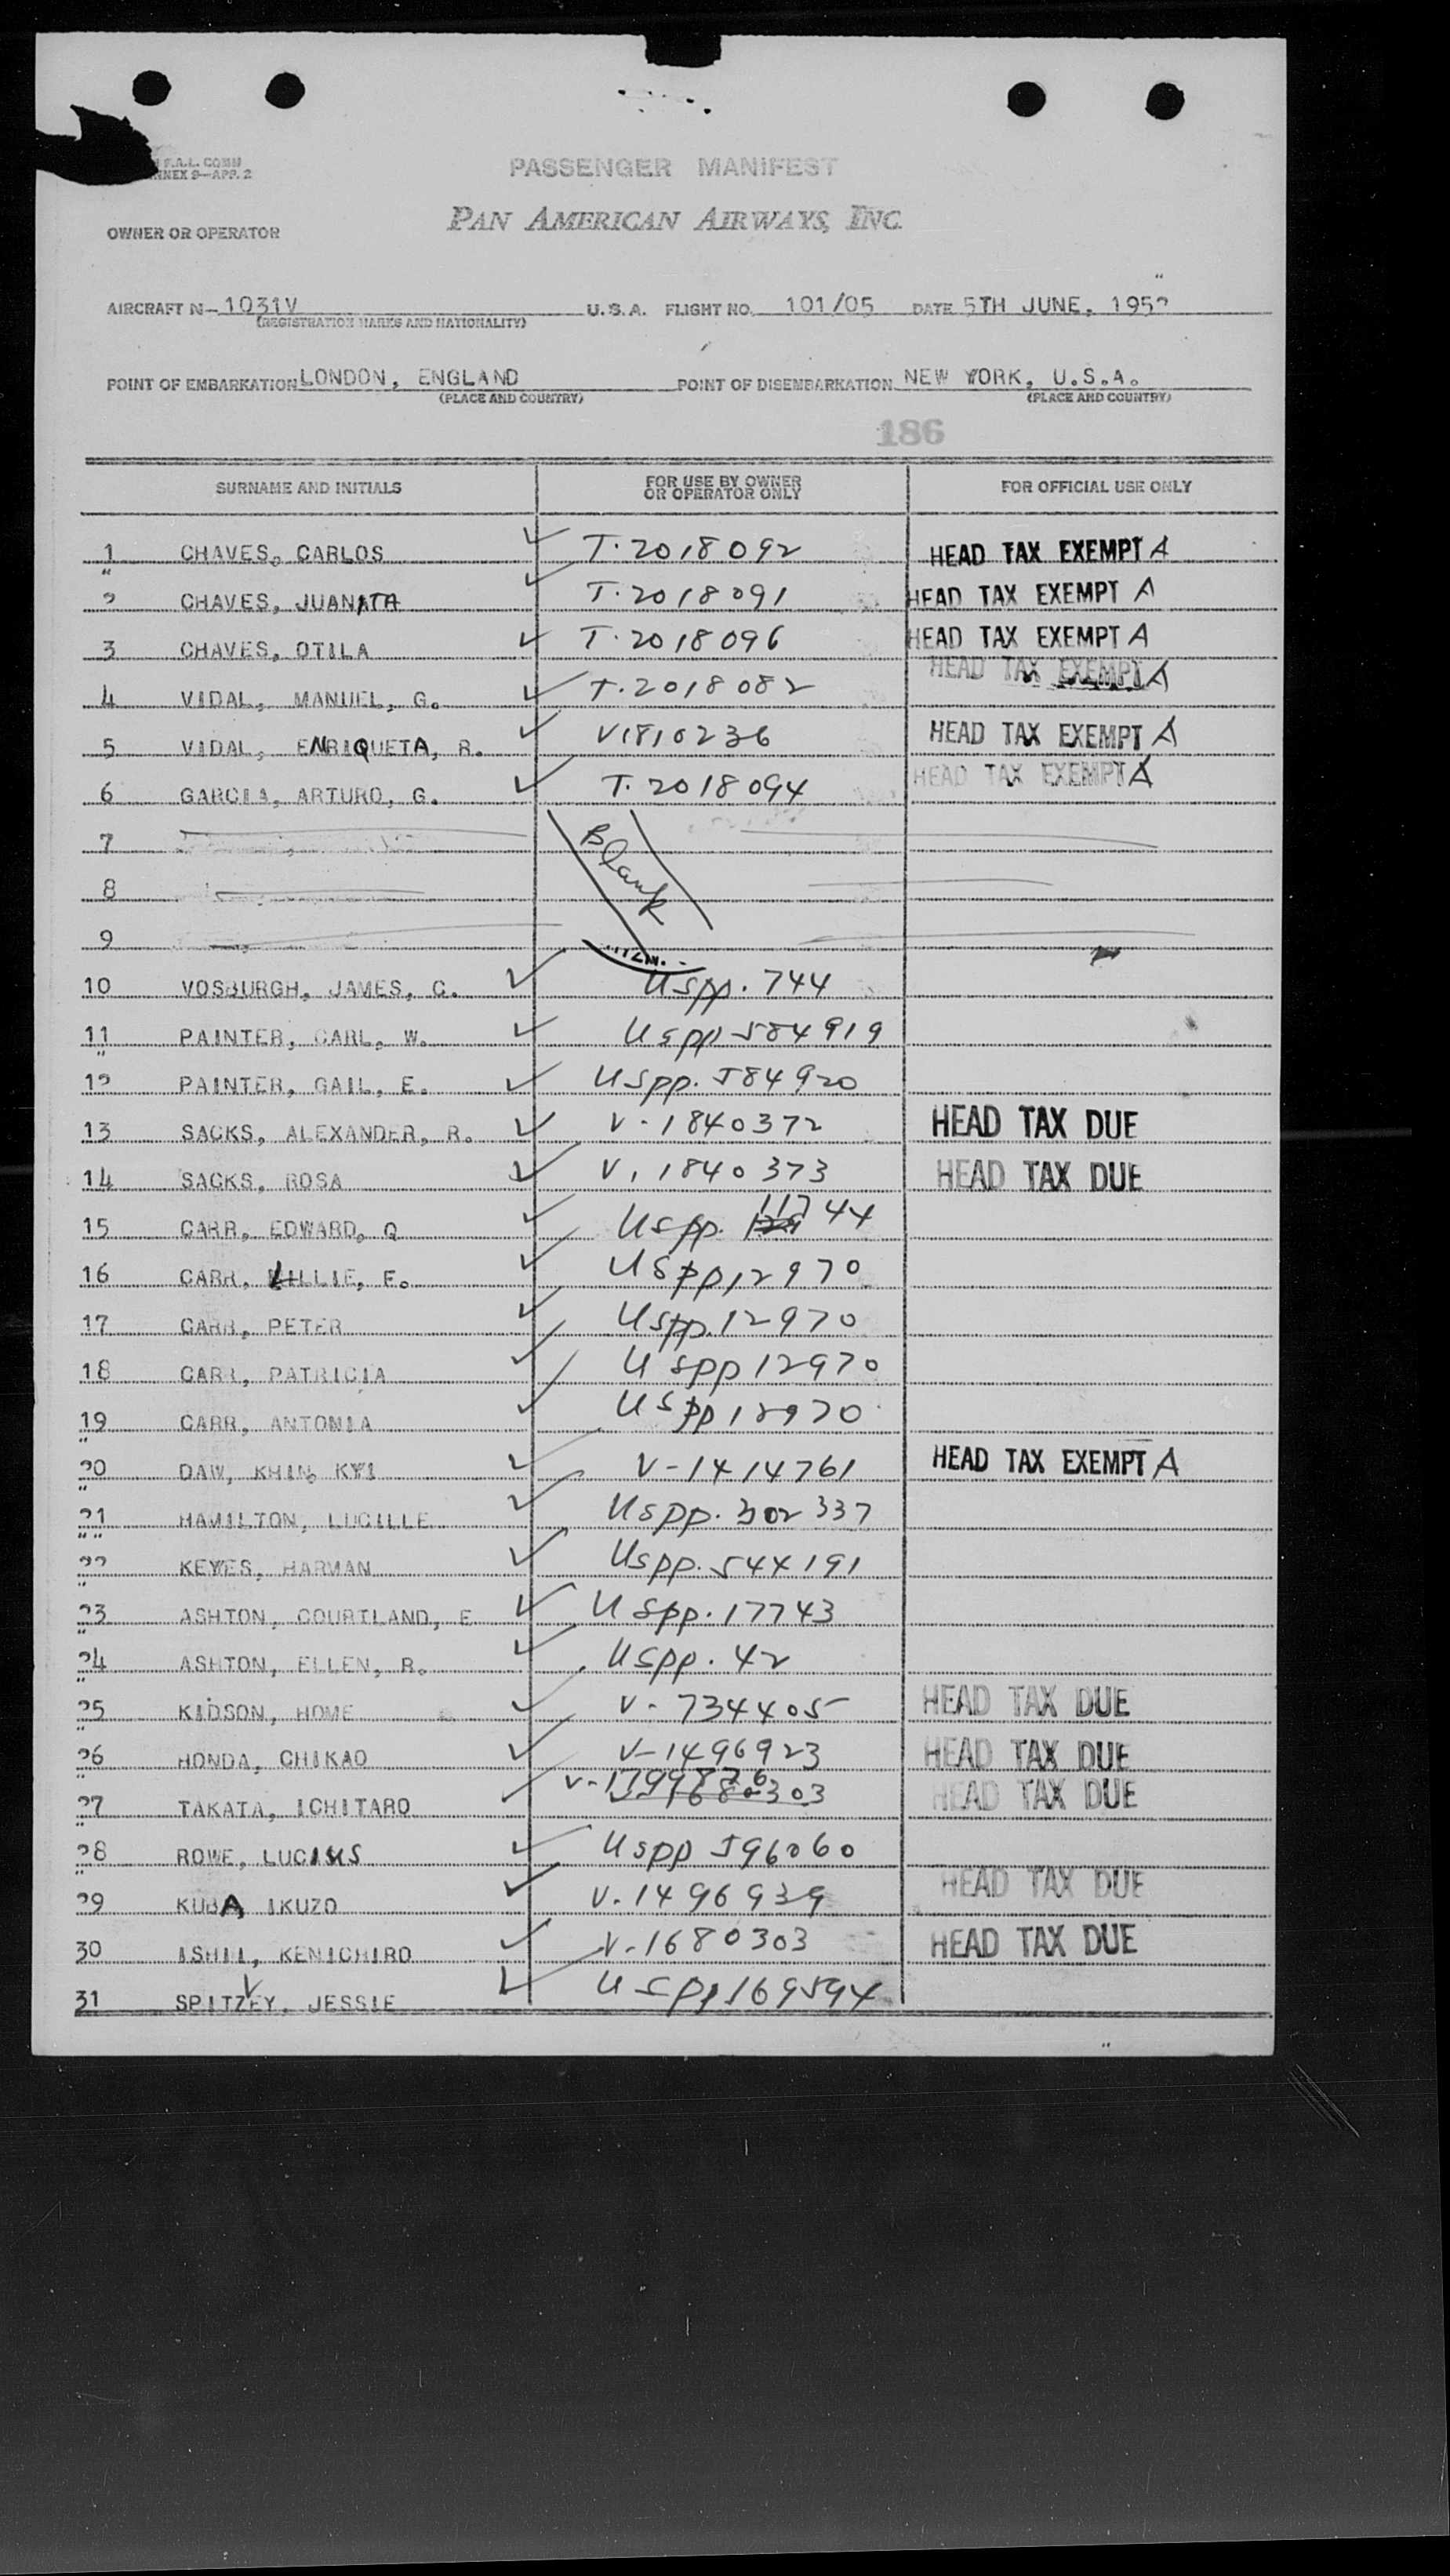 F.A.L. COMM
ANNEX 9—APP. 2
PASSENGER MANIFEST
PAN AMERICAN AIRWAYS, INC.
OWNER OR OPERATOR
AIRCRAFT N- 1031V U.S.A. FLIGHT NO. 101/05 DATE 5TH JUNE, 1952
(REGISTRATION MARKS AND NATIONALITY)
POINT OF EMBARKATION LONDON, ENGLAND POINT OF DISEMBARKATION NEW YORK, U.S.A.
(PLACE AND COUNTRY) (PLACE AND COUNTRY)
186
SURNAME AND INITIALS FOR USE BY OWNER OR OPERATOR ONLY FOR OFFICIAL USE ONLY
1 CHAVES, CARLOS T. 2018092 HEAD TAX EXEMPT A
2 CHAVES, JUANITA T. 2018091 HEAD TAX EXEMPT A
3 CHAVES, OTILA T. 2018096 HEAD TAX EXEMPT A
4 VIDAL, MANUEL, G. T. 2018082 HEAD TAX EXEMPT A
5 VIDAL, ENRIQUETA, R. V1810236 HEAD TAX EXEMPT A
6 GARCIA, ARTURO, G. T. 2018094 HEAD TAX EXEMPT A
7 Blank
8
9
10 VOSBURGH, JAMES, C. USpp. 744
11 PAINTER, CARL, W. USpp 584919
12 PAINTER, GAIL, E. USpp. 584920
13 SACKS, ALEXANDER, R. V-1840372 HEAD TAX DUE
14 SACKS, ROSA V. 1840373 HEAD TAX DUE
15 CARR, EDWARD, Q USpp. 11744
16 CARR, LILLIE, E. USpp 12970
17 CARR, PETER USpp. 12970
18 CARR, PATRICIA USpp 12970
19 CARR, ANTONIA USpp 12970
20 DAW, KHIN, KYI V-1414761 HEAD TAX EXEMPT A
21 HAMILTON, LUCILLE USpp. 302337
22 KEYES, HARMAN USpp. 544191
23 ASHTON, COURTLAND, E USpp. 17743
24 ASHTON, ELLEN, R. USpp. 42
25 KIDSON, HOME V-734405 HEAD TAX DUE
26 HONDA, CHIKAO V-1496923 HEAD TAX DUE
27 TAKATA, ICHITARO V-1799876 1680303 HEAD TAX DUE
28 ROWE, LUCIUS USpp 596060
29 KUBA, IKUZO V. 1496939 HEAD TAX DUE
30 ISHII, KENICHIRO V-1680303 HEAD TAX DUE
31 SPITZEY, JESSIE USpp 169594